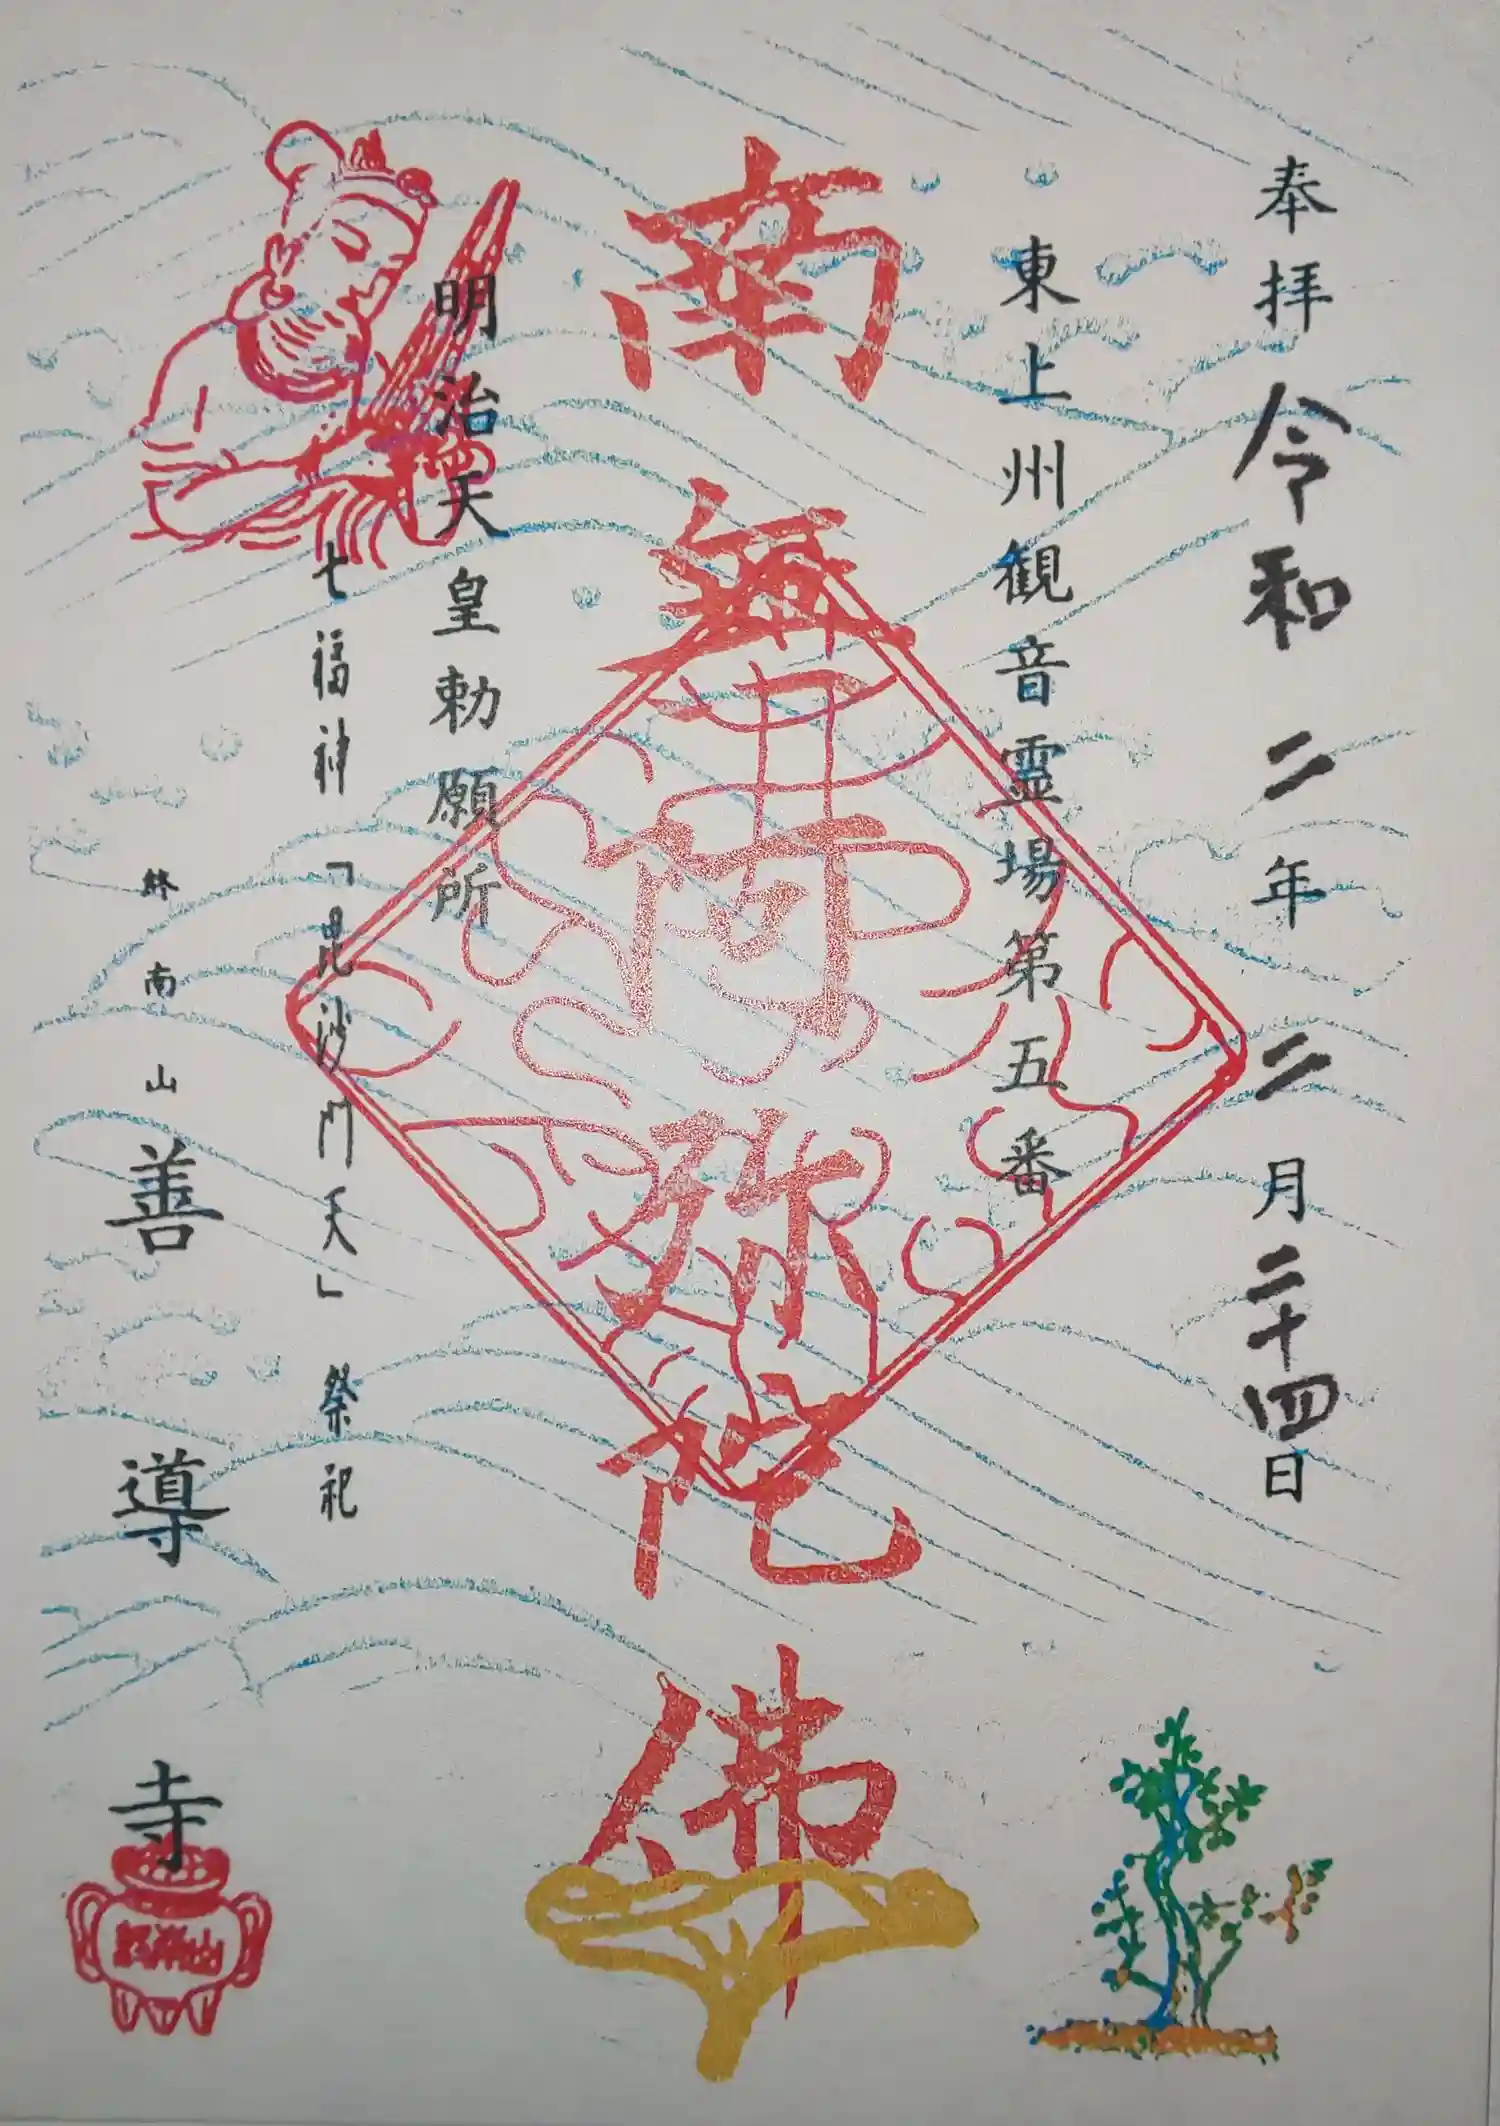 奉拝 令和二年二月二十四日
東上州観音霊場第五番
南無阿弥陀佛
明治天皇勅願所
七福神「毘沙門天」祭祀
終南山 善導寺